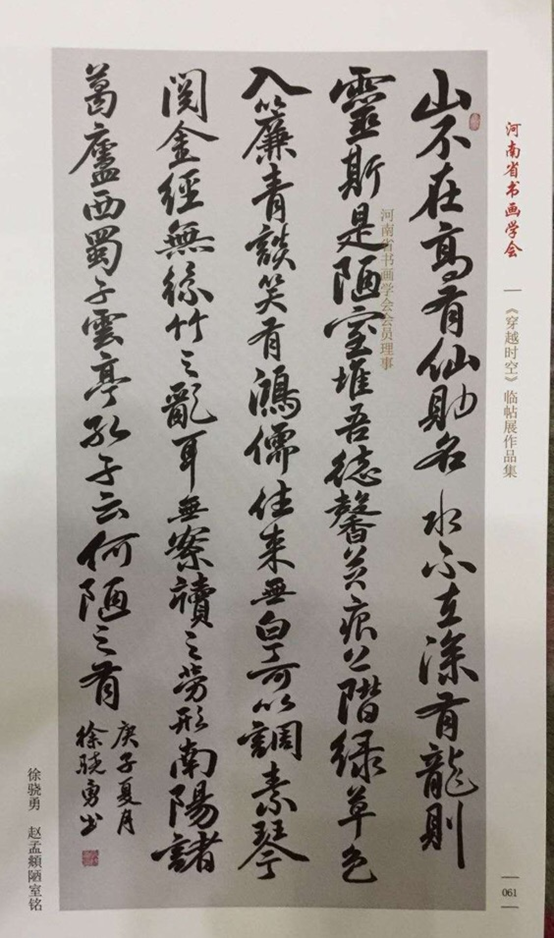 山不在高有仙則名水不在深有龍則
靈斯是陋室惟吾德馨苔痕上階緑草色
入簾青談笑有鴻儒往来無白丁可以調素琴
閱金經無絲竹之亂耳無案牘之勞形南陽諸
葛廬西蜀子雲亭孔子云何陋之有
庚子夏月
徐骁勇书
河南省书画学会会员理事
河南省书画学会
《穿越时空》临帖展作品集
061
徐骁勇 赵孟頫陋室铭